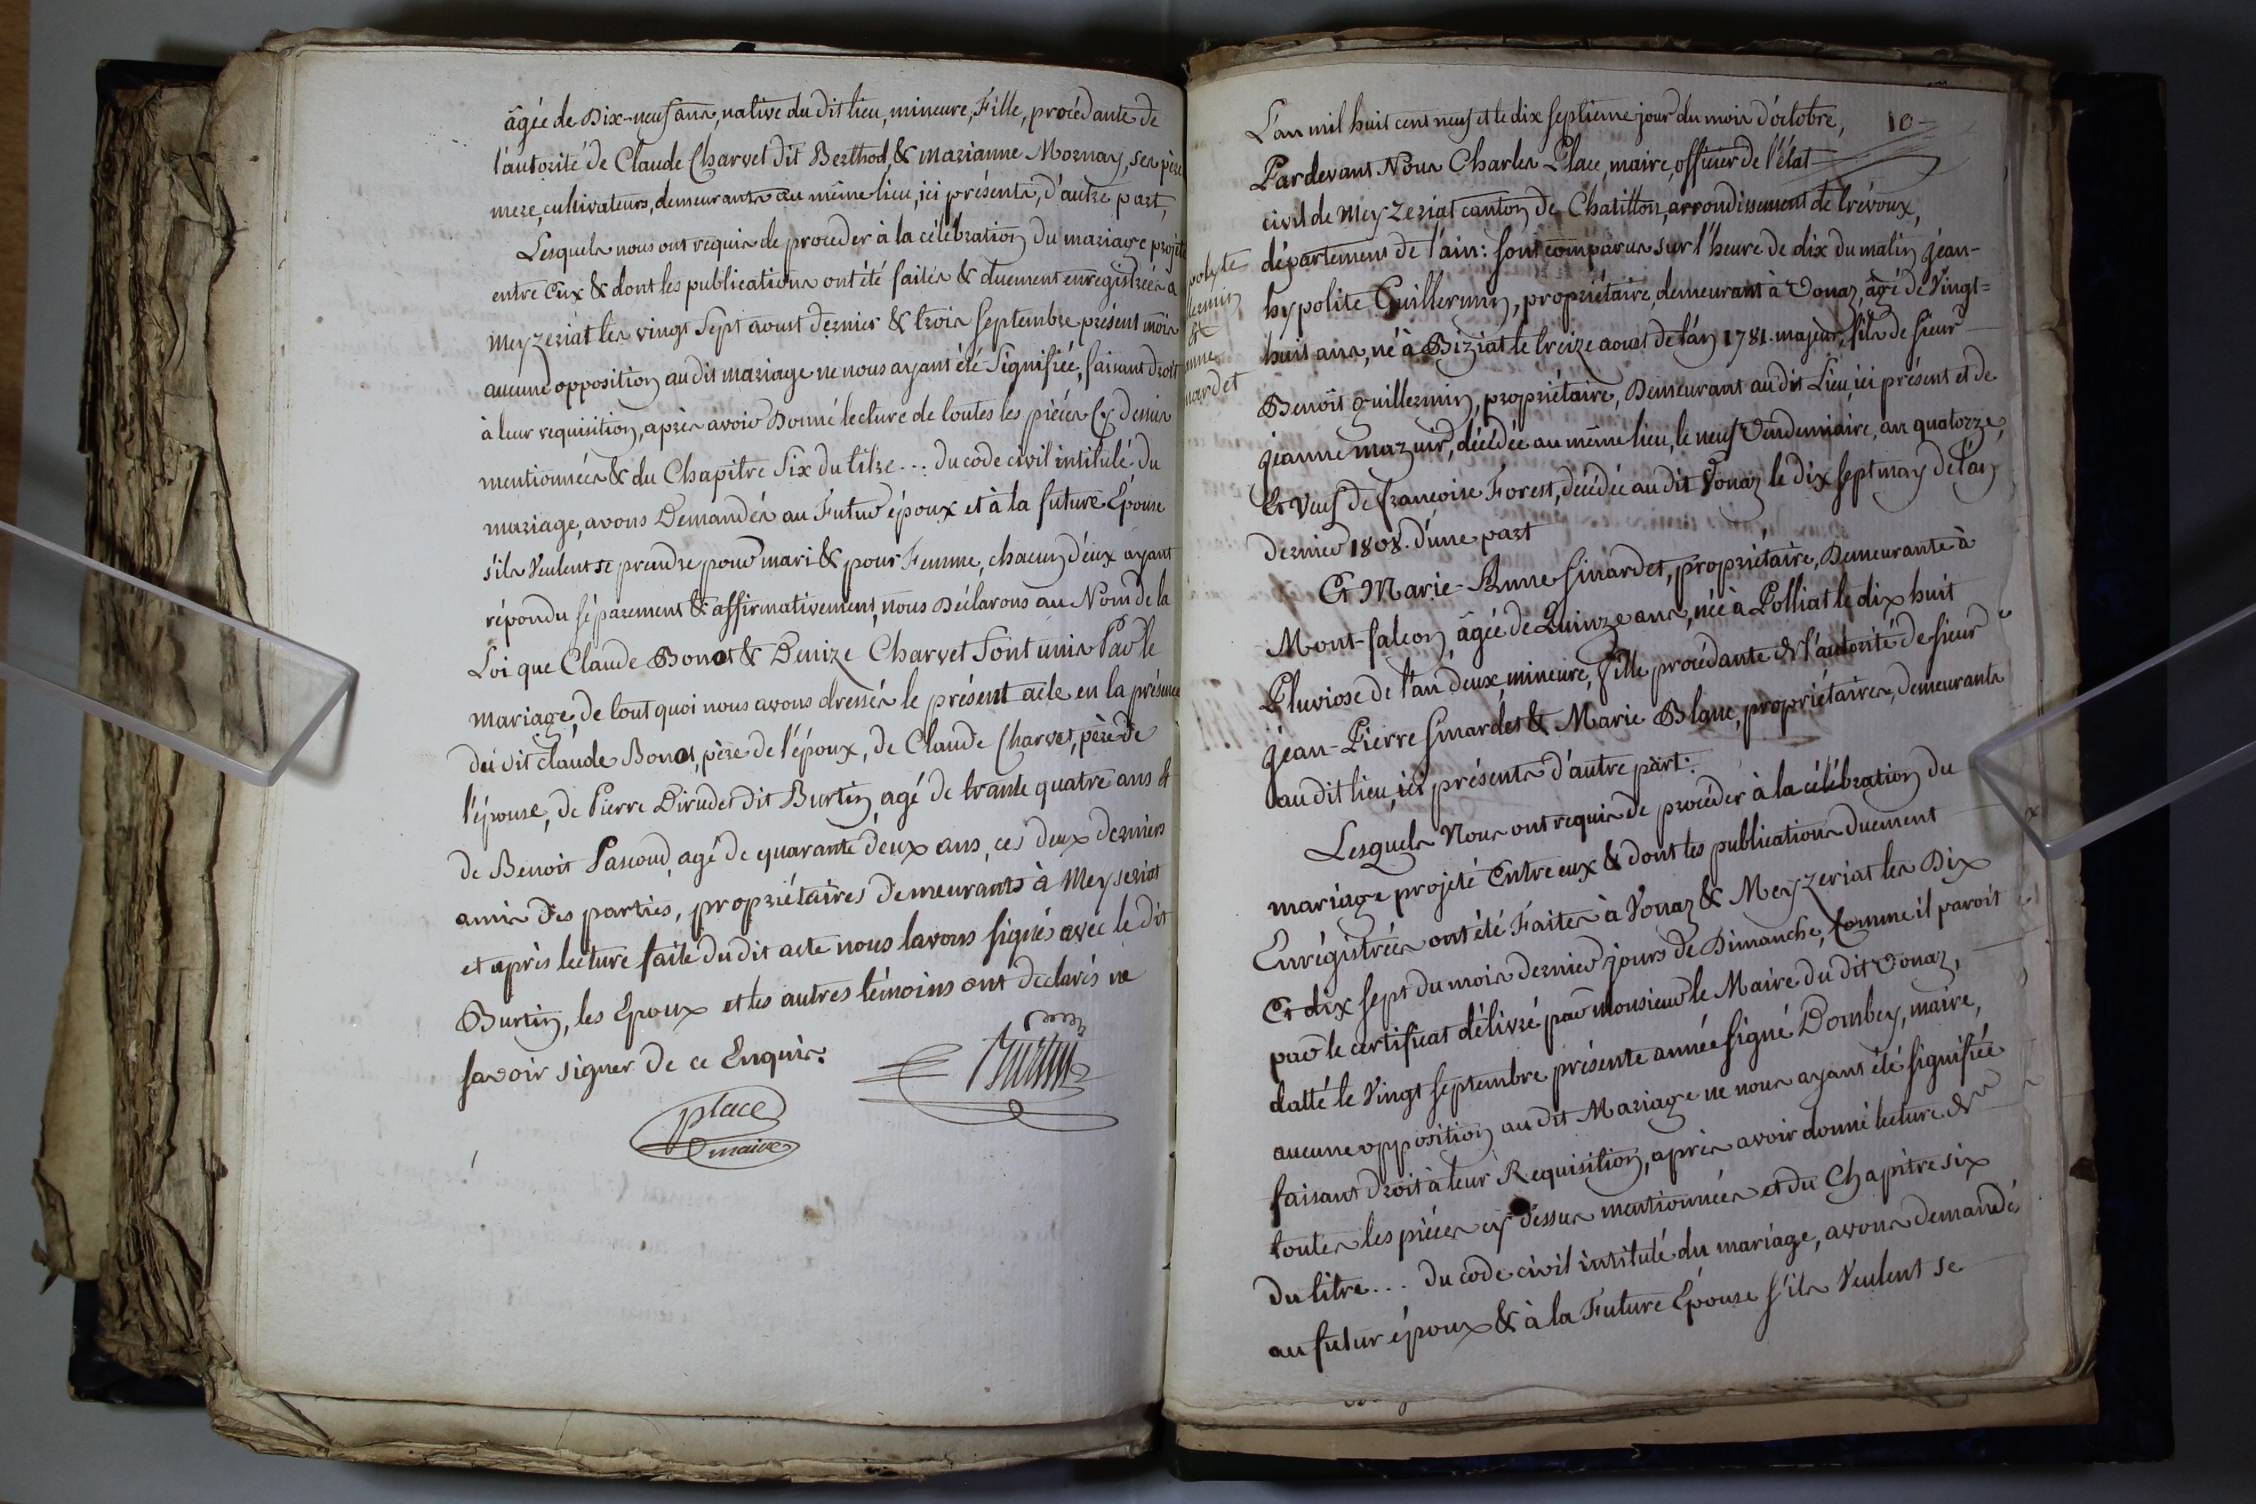 âgée de Dix-neuf ans, native du dit lieu, mineure, Fille, procédante de
l'autorité de Claude Charvet dit Berthod & marianne Mornay, ses père
mere, cultivateurs, demeurants au même lieu, ici présents, d'autre part,
Lesquels nous ont requis de proceder à la célébration du mariage projeté
entre Eux & dont les publications ont été faites & duement enregistrées a
Meyzériat les vingt Sept aoust dernier & trois Septembre présent mois
aucune opposition au dit mariage ne nous ayant été Signifiée, faisant droit
à leur requisition, après avoir Donné lecture de toutes les pièces Cy dessus
mentionnées & du Chapitre Six du titre... du code civil intitulé du
mariage, avons Demandés au Futur époux et à la future Epouse
s'ils Veulent se prendre pour mari & pour Femme, chacun d'eux ayant
répondu séparement & affirmativement, nous Déclarons au Nom de la
Loi que Claude Bonot & Denize Charvet Sont unis Par le
mariage, de tout quoi nous avons dressés le présent acte en la présence
du dit Claude Bonot, père de l'époux, de Claude Charvet, père de
l'épouse, de Pierre Dirudet dit Burtin, agé de trante quatre ans &
de Benoit Pascoud, agé de quarante deux ans, ces deux derniers
amis des parties, propriétaires demeurants à Meyseriat
et après lecture faite du dit acte nous l'avons signés avec le dit
Burtin, les Epoux et les autres témoins ont declarés ne
savoir signer de ce Enquis.
Burtin
place
maire
10
L'an mil huit cent neuf et le dix septieme jour du mois d'octobre,
Pardevant Nous Charles Place, maire, officier de l'état
civil de Meyzeriat canton de Châtillon, arrondissement de trévoux,
département de l'ain: sont comparus sur l'heure de dix du matin jean-
hypolite Guillermin, propriétaire, demeurant à Vonaz, âgé de Vingt=
huit ans, né à Biziat le treize aoust de l'an 1781. majeur, fils de sieur
Benoît guillermin, propriétaire, Demeurant au dit Lieu, ici présent et de
jeanne mazuir, décédée au même lieu, le neuf Vendemiaire, an quatorze,
Et Veuf de françoise Forest, décédée au dit Vonaz le dix sept may de l'an
dernier 1808. d'une part
Et Marie-Anne Sinardet, propriétaire, Demeurante à
Mont-falcon, âgée de Quinze ans, née à Polliat le dix huit
Pluviose de l'an deux, mineure, fille procédante de l'autorité de sieur
jean-Pierre Sinardet & Marie Blanc, propriétaires, demeurants
au dit lieu, ici présents d'autre part:
Lesquels Nous ont requis de procéder à la célébration du
mariage projeté Entre eux & dont les publications duement
Enrégistrées ont été Faites à Vonaz & Meyzeriat les Dix
Et dix sept du mois dernier jours de Dimanche, Comme il paroit
par le certificat délivré par monsieur le Maire du dit Vonaz,
datté le Vingt septembre présente année signé Dombey, maire,
aucune opposition au dit Mariage ne nous ayant été signifiée
faisant droit à leur Requisition, après avoir donné lecture de
toutes les pièces cy dessus mentionnées et du Chapitre six
du titre... du code civil intitulé du mariage, avons demandé
au futur époux & à la Future Epouse s'ils Veulent se